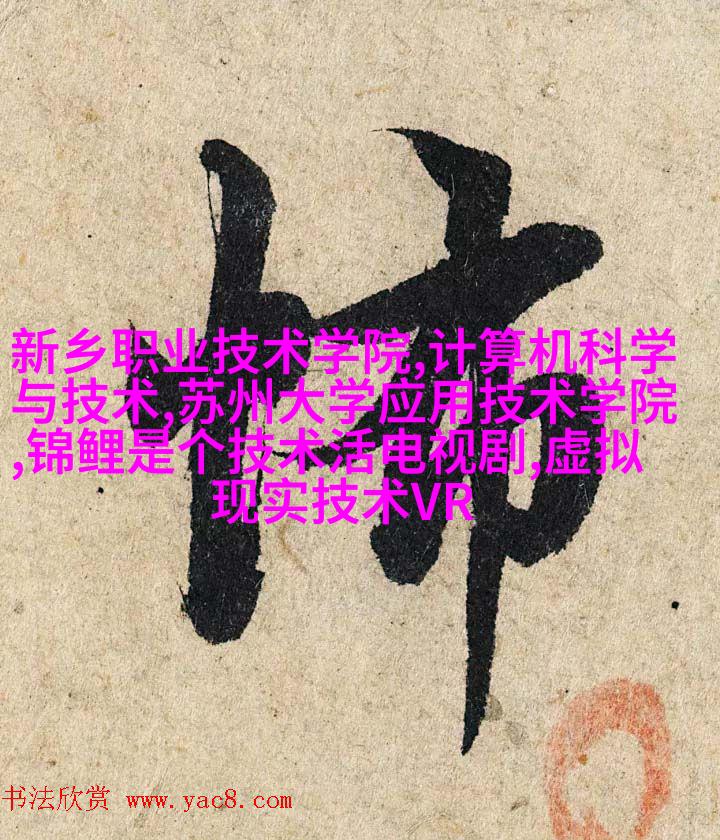 新乡职业技术学院,计算机科学
与技术,苏州大学应用技术学院
,锦鲤是个技术活电视剧,虚拟
现实技术VR
书法欣赏 www.yac8.com